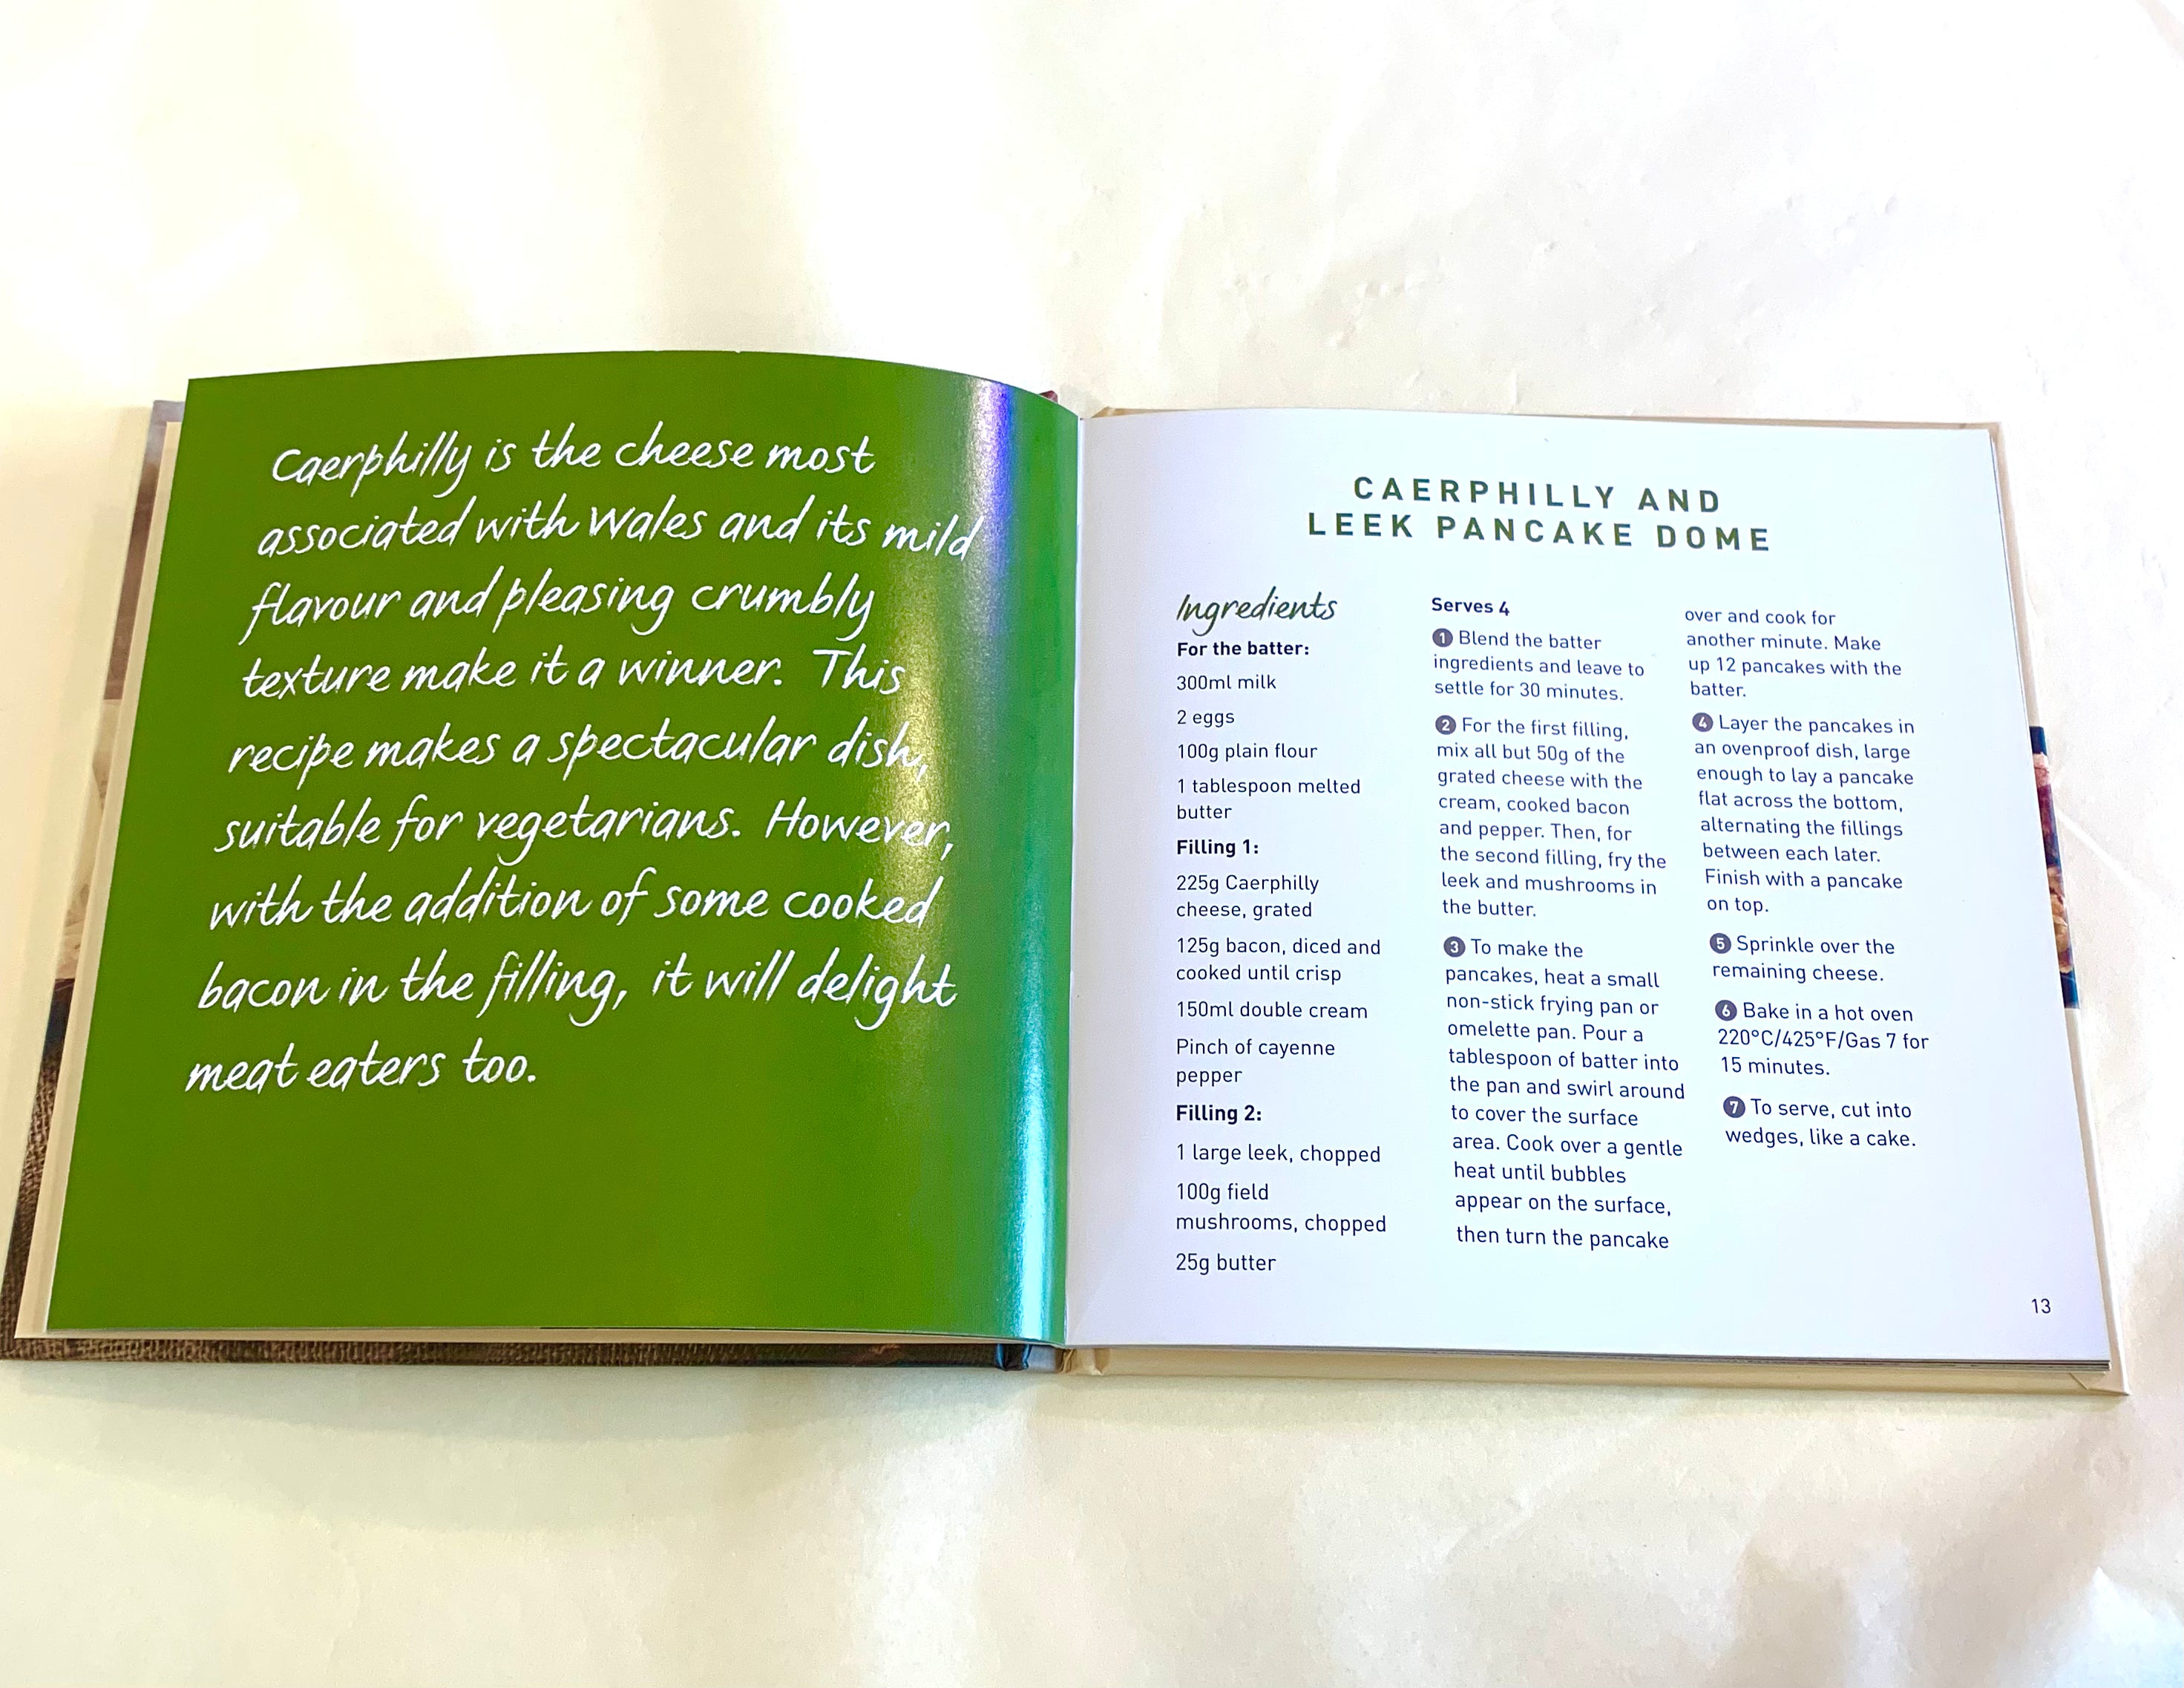 Caerphilly is the cheese most
associated with Wales and its mild
flavour and pleasing crumbly
texture make it a winner. This
recipe makes a spectacular dish,
suitable for vegetarians. However,
with the addition of some cooked
bacon in the filling, it will delight
meat eaters too.
CAERPHILLY AND
LEEK PANCAKE DOME
Ingredients
For the batter:
300ml milk
2 eggs
100g plain flour
1 tablespoon melted
butter
Filling 1:
225g Caerphilly
cheese, grated
125g bacon, diced and
cooked until crisp
150ml double cream
Pinch of cayenne
pepper
Filling 2:
1 large leek, chopped
100g field
mushrooms, chopped
25g butter
Serves 4
1 Blend the batter
ingredients and leave to
settle for 30 minutes.
2 For the first filling,
mix all but 50g of the
grated cheese with the
cream, cooked bacon
and pepper. Then, for
the second filling, fry the
leek and mushrooms in
the butter.
3 To make the
pancakes, heat a small
non-stick frying pan or
omelette pan. Pour a
tablespoon of batter into
the pan and swirl around
to cover the surface
area. Cook over a gentle
heat until bubbles
appear on the surface,
then turn the pancake
over and cook for
another minute. Make
up 12 pancakes with the
batter.
4 Layer the pancakes in
an ovenproof dish, large
enough to lay a pancake
flat across the bottom,
alternating the fillings
between each later.
Finish with a pancake
on top.
5 Sprinkle over the
remaining cheese.
6 Bake in a hot oven
220°C/425°F/Gas 7 for
15 minutes.
7 To serve, cut into
wedges, like a cake.
13